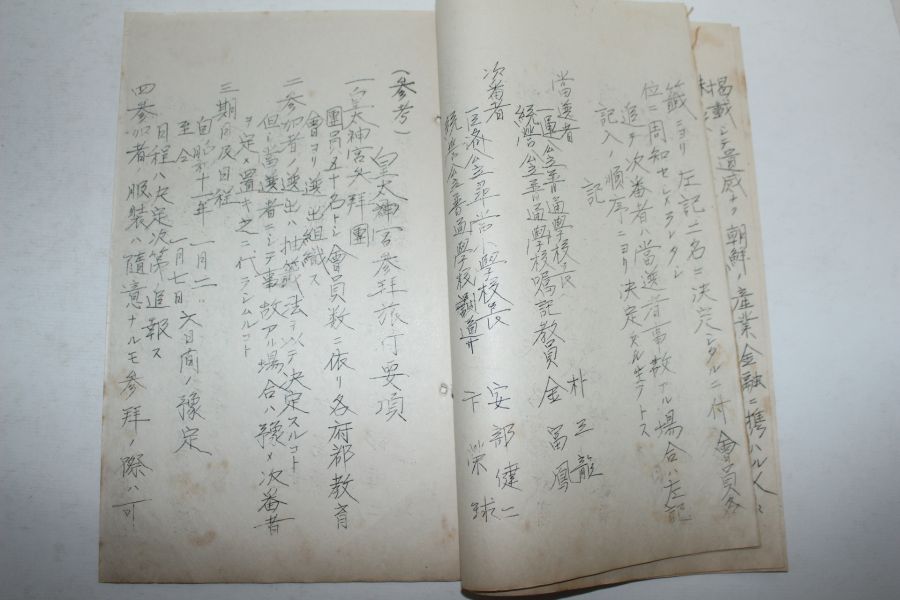 掲載シテ遺感ナク朝鮮ノ産業金融ニ携ハル
籤ニヨリ左記二名ニ決定シタルニ付會員各
位ニ周知セシメラレタシ
追テ次番者ハ當選者事故アル場合ハ左記
記入ノ順序ニヨリ決定スル
記
當選者
普通學校長 朴 三龍
統營公立普通學校嘱記教員 金 冨鳳
次番者
公立尋常小學校長 安部健二
統營公立普通學校訓導 卞 榮球
(参考) 皇太神宮参拜旅行要項
一 皇太神宮参拜團
團員五十名トシ會員数ニ依リ各府郡教育
會ヨリ選出組織ス
二 参加者ノ選出ハ抽籤法ヲ以テ決定スルコト
但シ當選者ニシテ事故アル場合ハ豫メ次番者
ヲ定メ置キ之ニ代ランムルコト
三 期間及日程
自昭和十一年一月二日
至仝 一月七日 六日間ノ豫定
日程ハ決定次第追報ス
四 参加者ノ服装ハ隨意ナルモ参拜ノ際ハ可